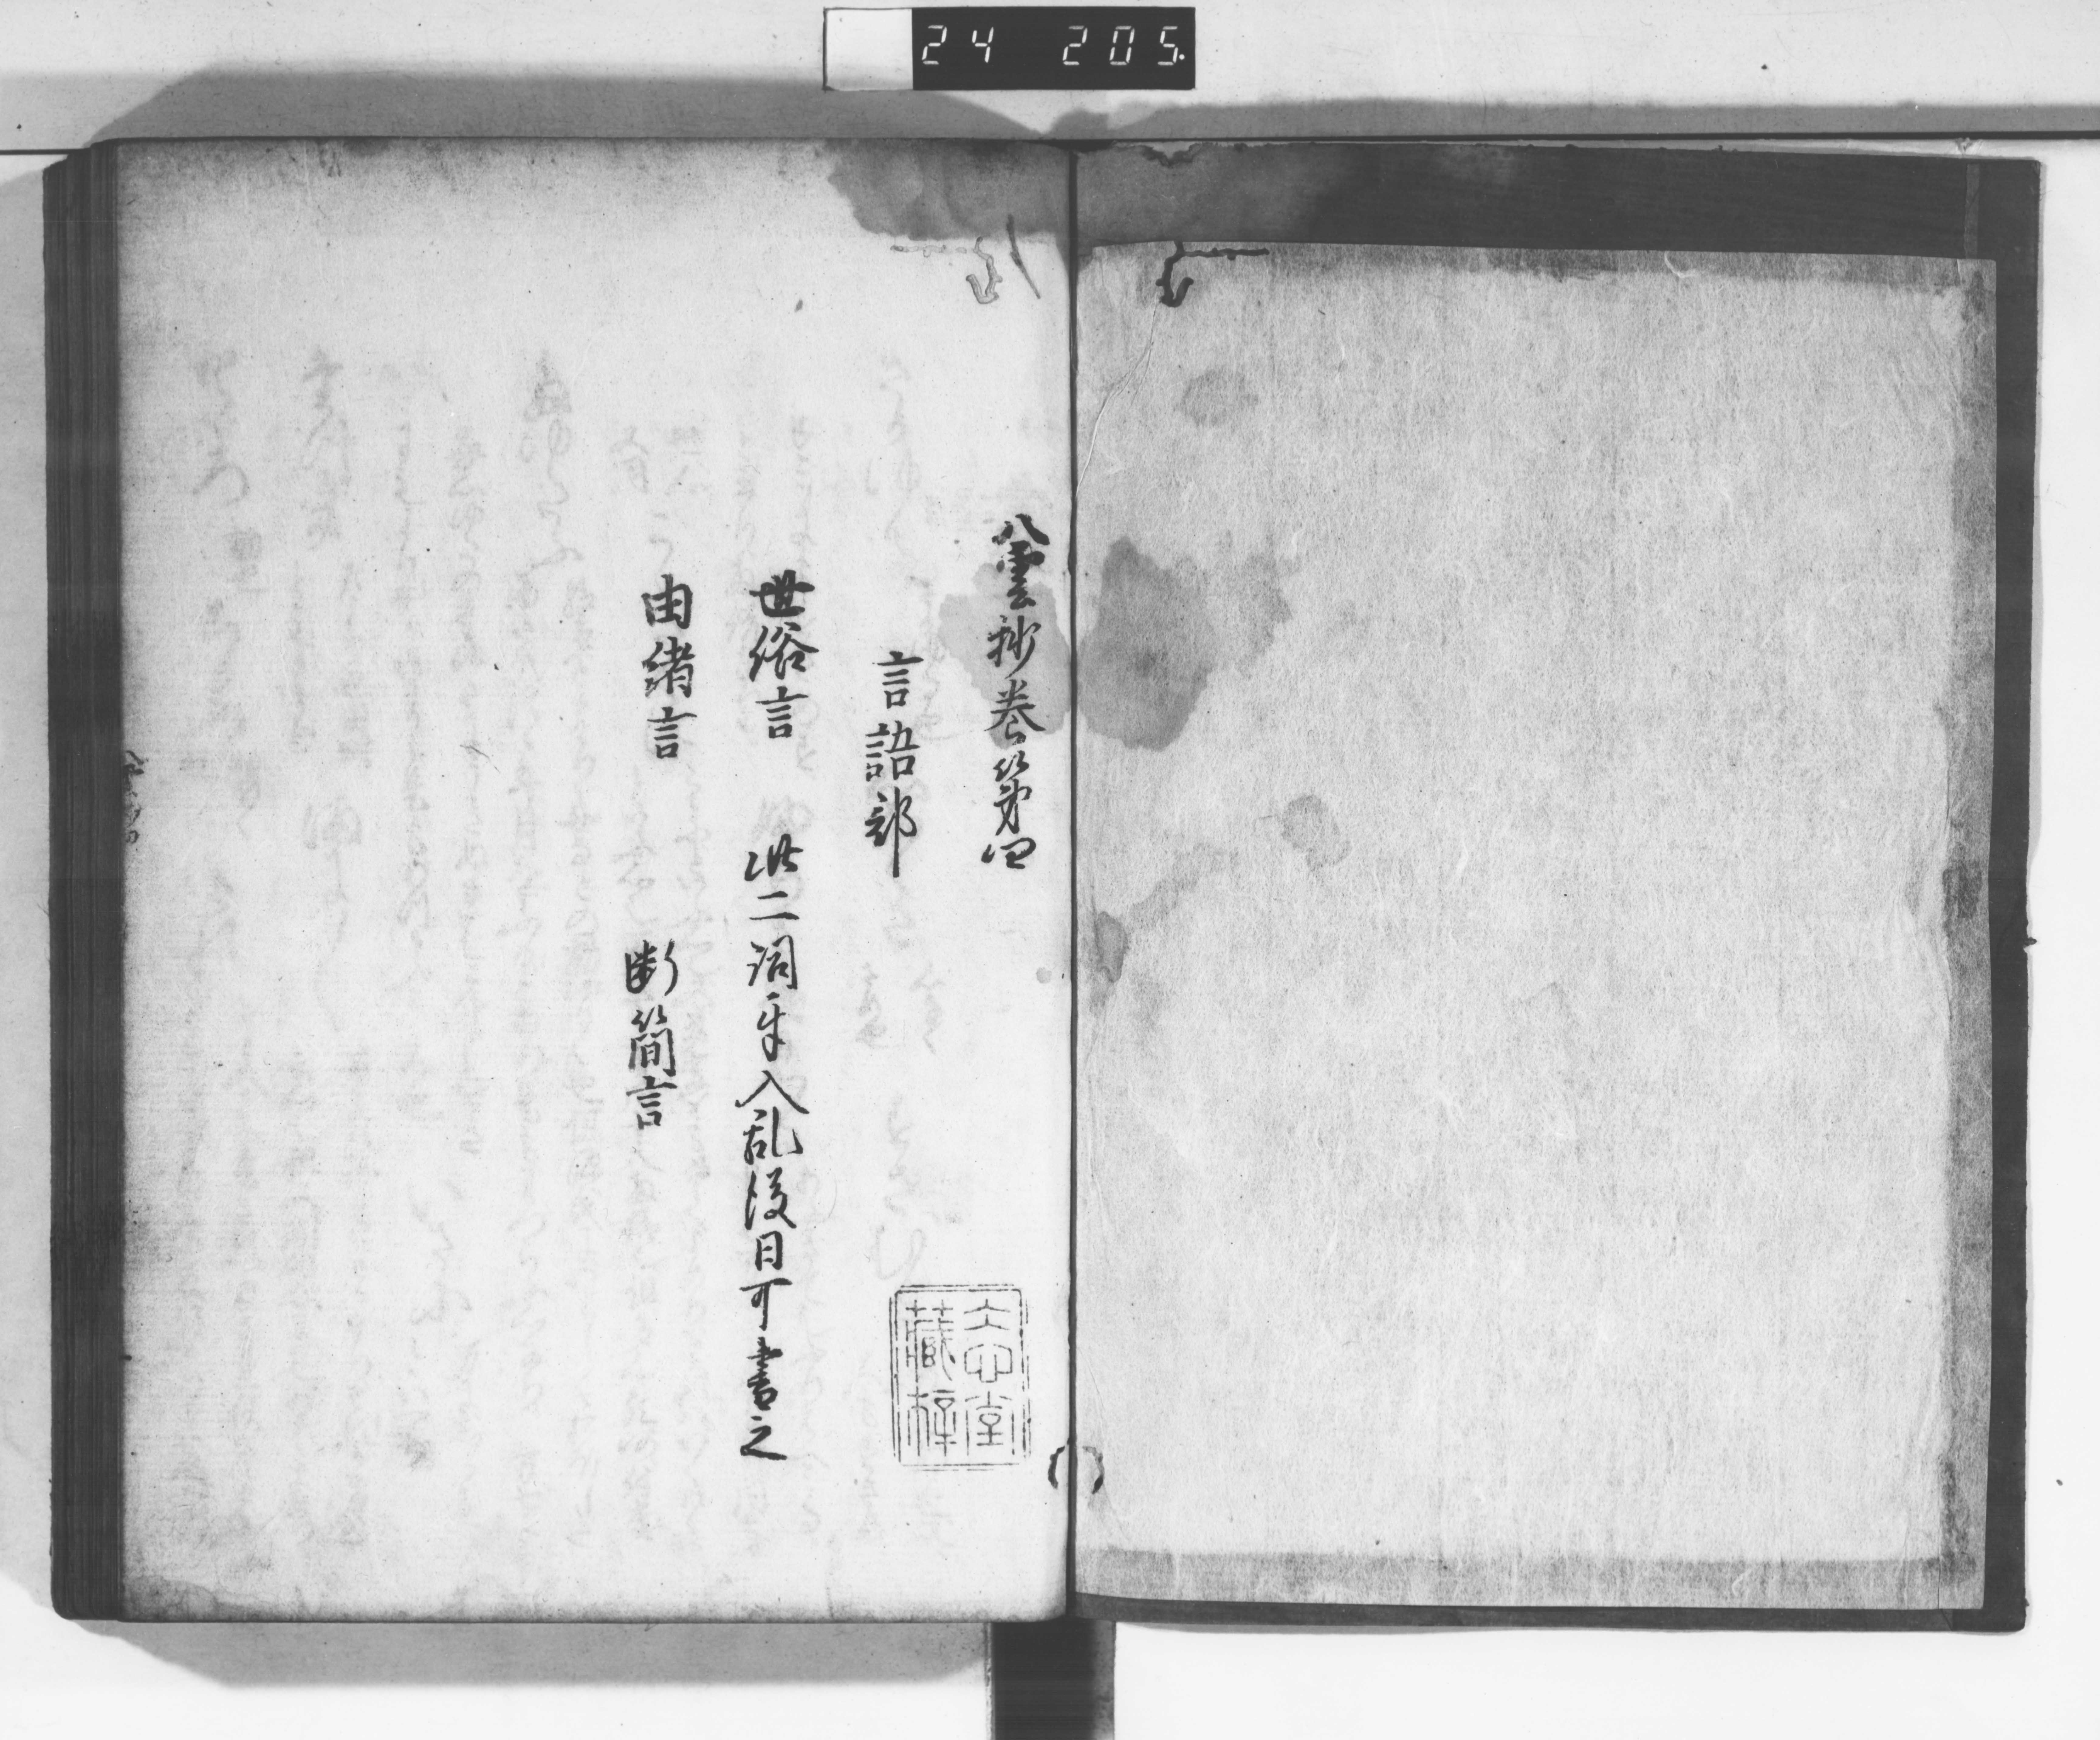 24 205.
八雲抄巻第四
言語部
世俗言 此二洞入乱後日可書之
由緒言 断簡言
堂
藏梓